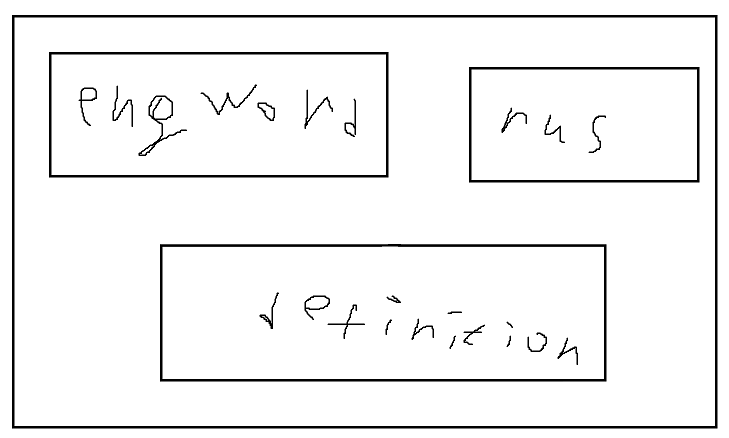 eng word
rus
definition